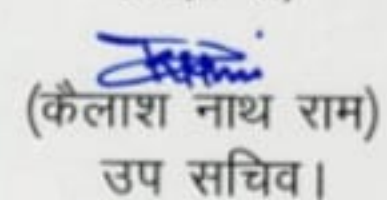 (कैलाश नाथ राम)
उप सचिव।